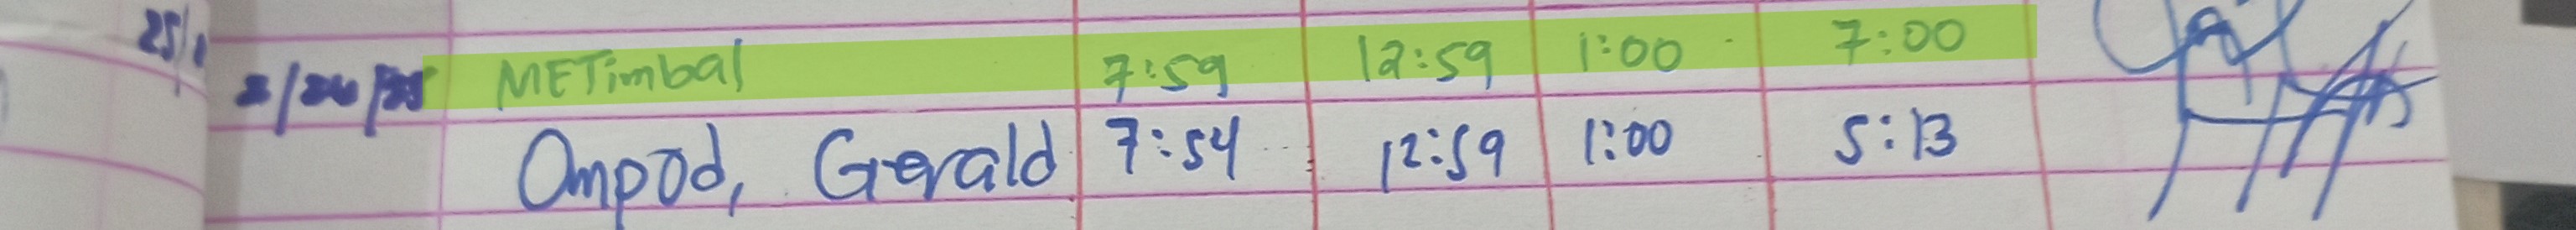 25/1
METimbal 7:59 12:59 1:00 7:00
Ompod, Gerald 7:54 12:59 1:00 5:13